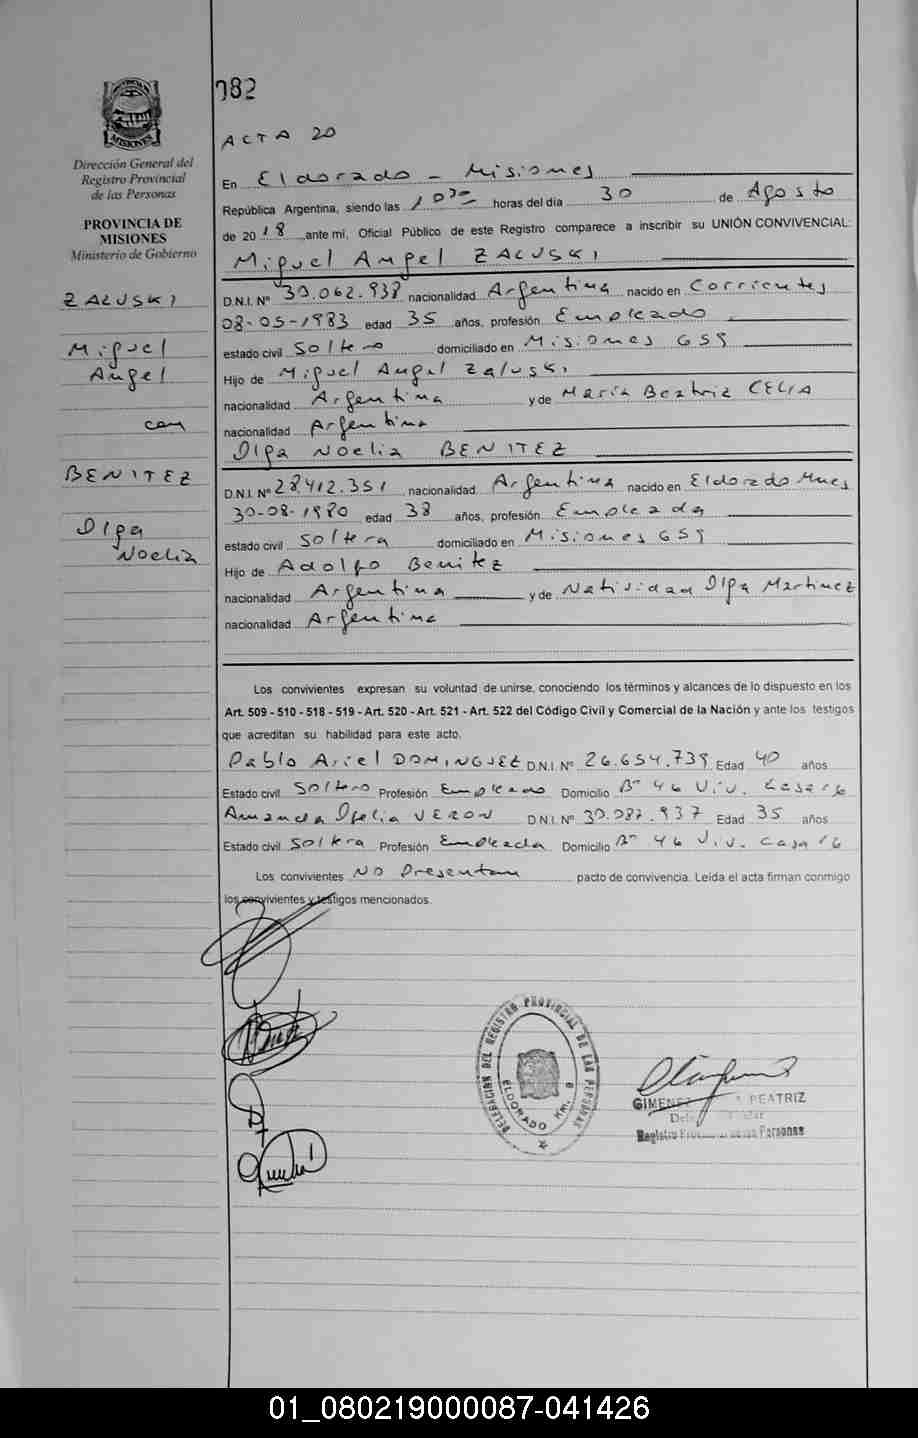 082
ACTA 20
MISIONES
Dirección General del
Registro Provincial
de las Personas
PROVINCIA DE
MISIONES
Ministerio de Gobierno
ZALUSKI
Miguel
Angel
con
BENITEZ
Olga
Noelia
En Eldorado - Misiones
República Argentina, siendo las 10 30 horas del día 30 de Agosto
de 2018 ante mí, Oficial Público de este Registro comparece a inscribir su UNIÓN CONVIVENCIAL:
Miguel Angel ZALUSKI
D.N.I. Nº 30.062.938 nacionalidad Argentina nacido en Corrientes
08-05-1983 edad 35 años, profesión Empleado
estado civil Soltero domiciliado en Misiones 659
Hijo de Miguel Angel Zaluski
nacionalidad Argentina y de María Beatriz CELIA
nacionalidad Argentina
Olga Noelia BENITEZ
D.N.I. Nº 28.412.351 nacionalidad Argentina nacido en Eldorado Mnes
30-08-1980 edad 38 años, profesión Empleada
estado civil Soltera domiciliado en Misiones 659
Hijo de Adolfo Benitez
nacionalidad Argentina y de Natividad Olga Martinez
nacionalidad Argentina
Los convivientes expresan su voluntad de unirse, conociendo los términos y alcances de lo dispuesto en los
Art. 509 - 510 - 518 - 519 - Art. 520 - Art. 521 - Art. 522 del Código Civil y Comercial de la Nación y ante los testigos
que acreditan su habilidad para este acto.
Pablo Ariel DOMINGUEZ D.N.I. Nº 26.654.739 Edad 40 años
Estado civil Soltero Profesión Empleado Domicilio Bº 46 Viv. Casa 16
Amanda Ofelia VERON D.N.I. Nº 30.087.937 Edad 35 años
Estado civil Soltera Profesión Empleada Domicilio Bº 46 Viv. Casa 16
Los convivientes NO Presentan pacto de convivencia. Leída el acta firman conmigo
los convivientes y testigos mencionados.
DELEGACION DEL REGISTRO PROVINCIAL DE LAS PERSONAS
ELDORADO KM. 9
GIMENEZ BEATRIZ
Registro Provincial de las Personas
01_080219000087-041426